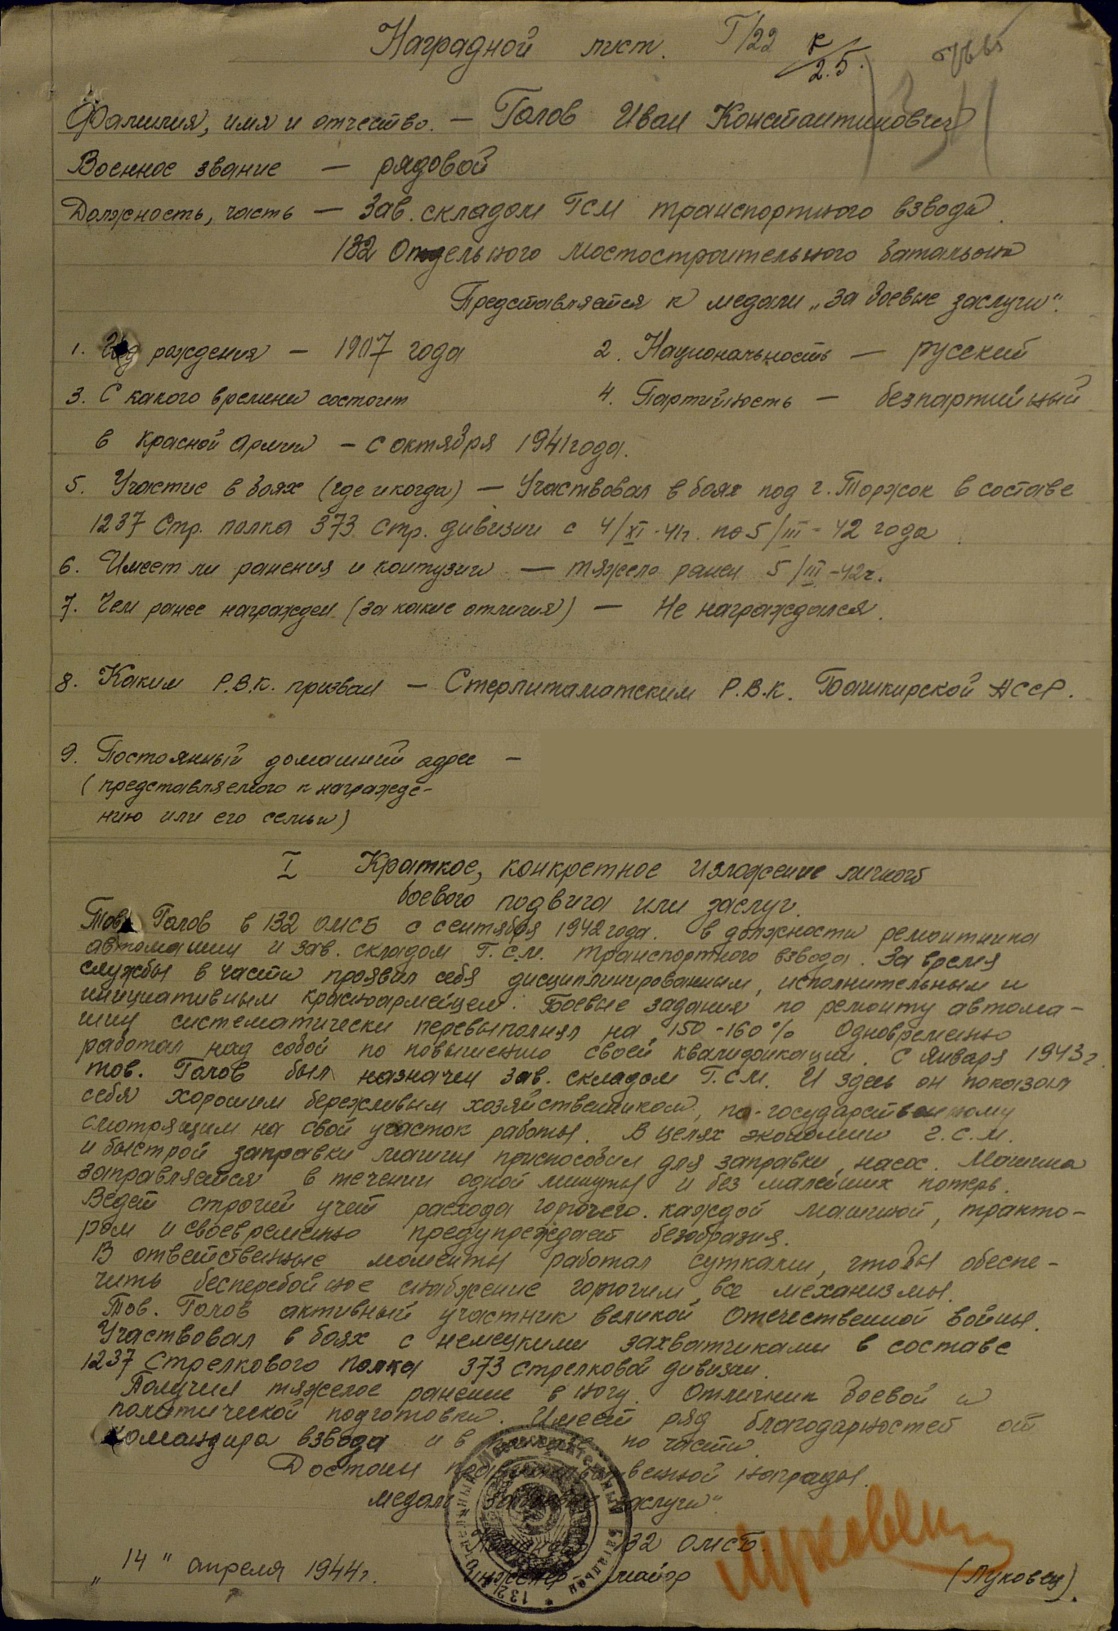 Наградной лист. Г/22 2.5.
Фамилия, имя и отчество. — Голов Иван Константинович
Военное звание — рядовой
Должность, часть — Зав. складом ГСМ транспортного взвода.
132 Отдельного мостостроительного батальона
Представляется к медали „За боевые заслуги“.
1. Год рождения — 1907 года 2. Национальность — русский
3. С какого времени состоит 4. Партийность — безпартийный
в Красной Армии — с октября 1941 года.
5. Участие в боях (где и когда) — Участвовал в боях под г. Торжок в составе
1237 Стр. полка 373 Стр. дивизии с 4/XI-41г. по 5/III-42 года.
6. Имеет ли ранения и контузии — тяжело ранен 5/III-42г.
7. Чем ранее награжден (за какие отличия) — Не награждался.
8. Каким Р.В.К. призван — Стерлитаматским Р.В.К. Башкирской АССР.
9. Постоянный домашний адрес —
(представляемого к награжде-
нию или его семьи)
I Краткое, конкретное изложение личного
боевого подвига или заслуг.
Тов. Голов в 132 ОМСБ с сентября 1942 года. в должности ремонтника
автомашин и зав. складом Г.С.М. транспортного взвода. За время
службы в части проявил себя дисциплинированным, исполнительным и
инициативным красноармейцем. Боевые задания по ремонту автома-
шин систематически перевыполнял на 150-160% Одновременно
работал над собой по повышению своей квалификации. С января 1943 г.
тов. Голов был назначен зав. складом Г.С.М. И здесь он показал
себя хорошим бережливым хозяйственником, по-государственному
смотрящим на свой участок работы. В целях экономии Г.С.М.
и быстрой заправки машин приспособил для заправки насос. Машина
заправляется в течении одной минуты и без малейших потерь.
Ведет строгий учет расхода горючего каждой машиной, тракто-
ром и своевременно предупреждает безобразия.
В ответственные моменты работал сутками, чтобы обеспе-
чить бесперебойное снабжение горючим все механизмы.
Тов. Голов активный участник великой Отечественной войны.
Участвовал в боях с немецкими захватчиками в составе
1237 Стрелкового полка 373 стрелковой дивизии.
Получил тяжелое ранение в ногу. Отличник боевой и
политической подготовки. Имеет ряд благодарностей от
командира взвода и в по части.
Достоин правительственной награды.
медали „За боевые заслуги“
Командир 132 ОМСБ.
инженер майор (Луковец).
„14“ апреля 1944г.